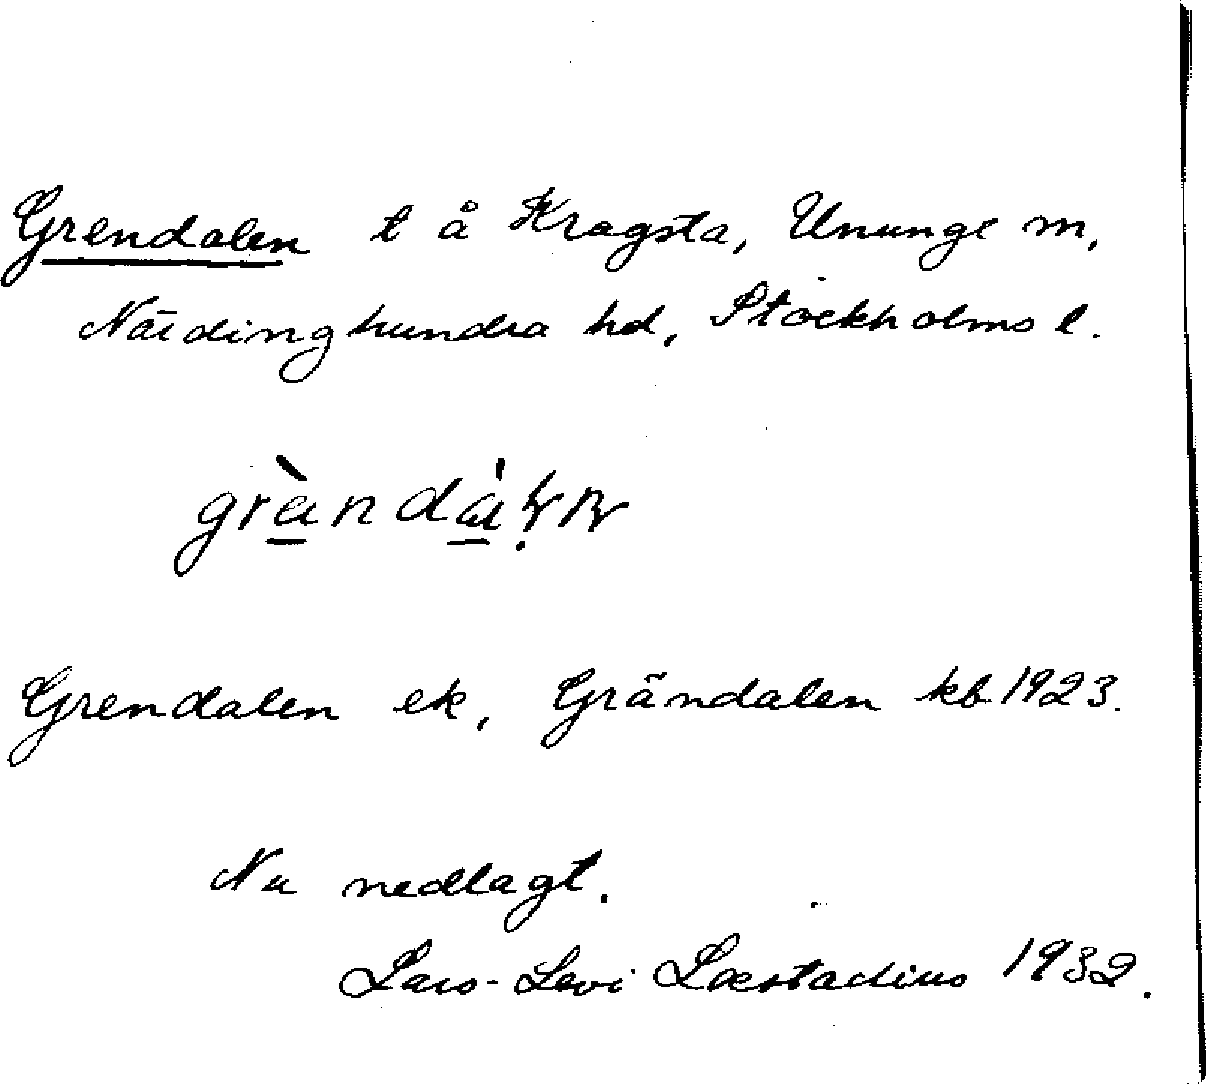 Grendalen t å Kragsta, Ununge sn,
Närdinghundra hd, Stockholms l.
Grendalen ek, Grändalen kb 1923.
Nu nedlagt.
Lars-Levi Læstadius 1932.